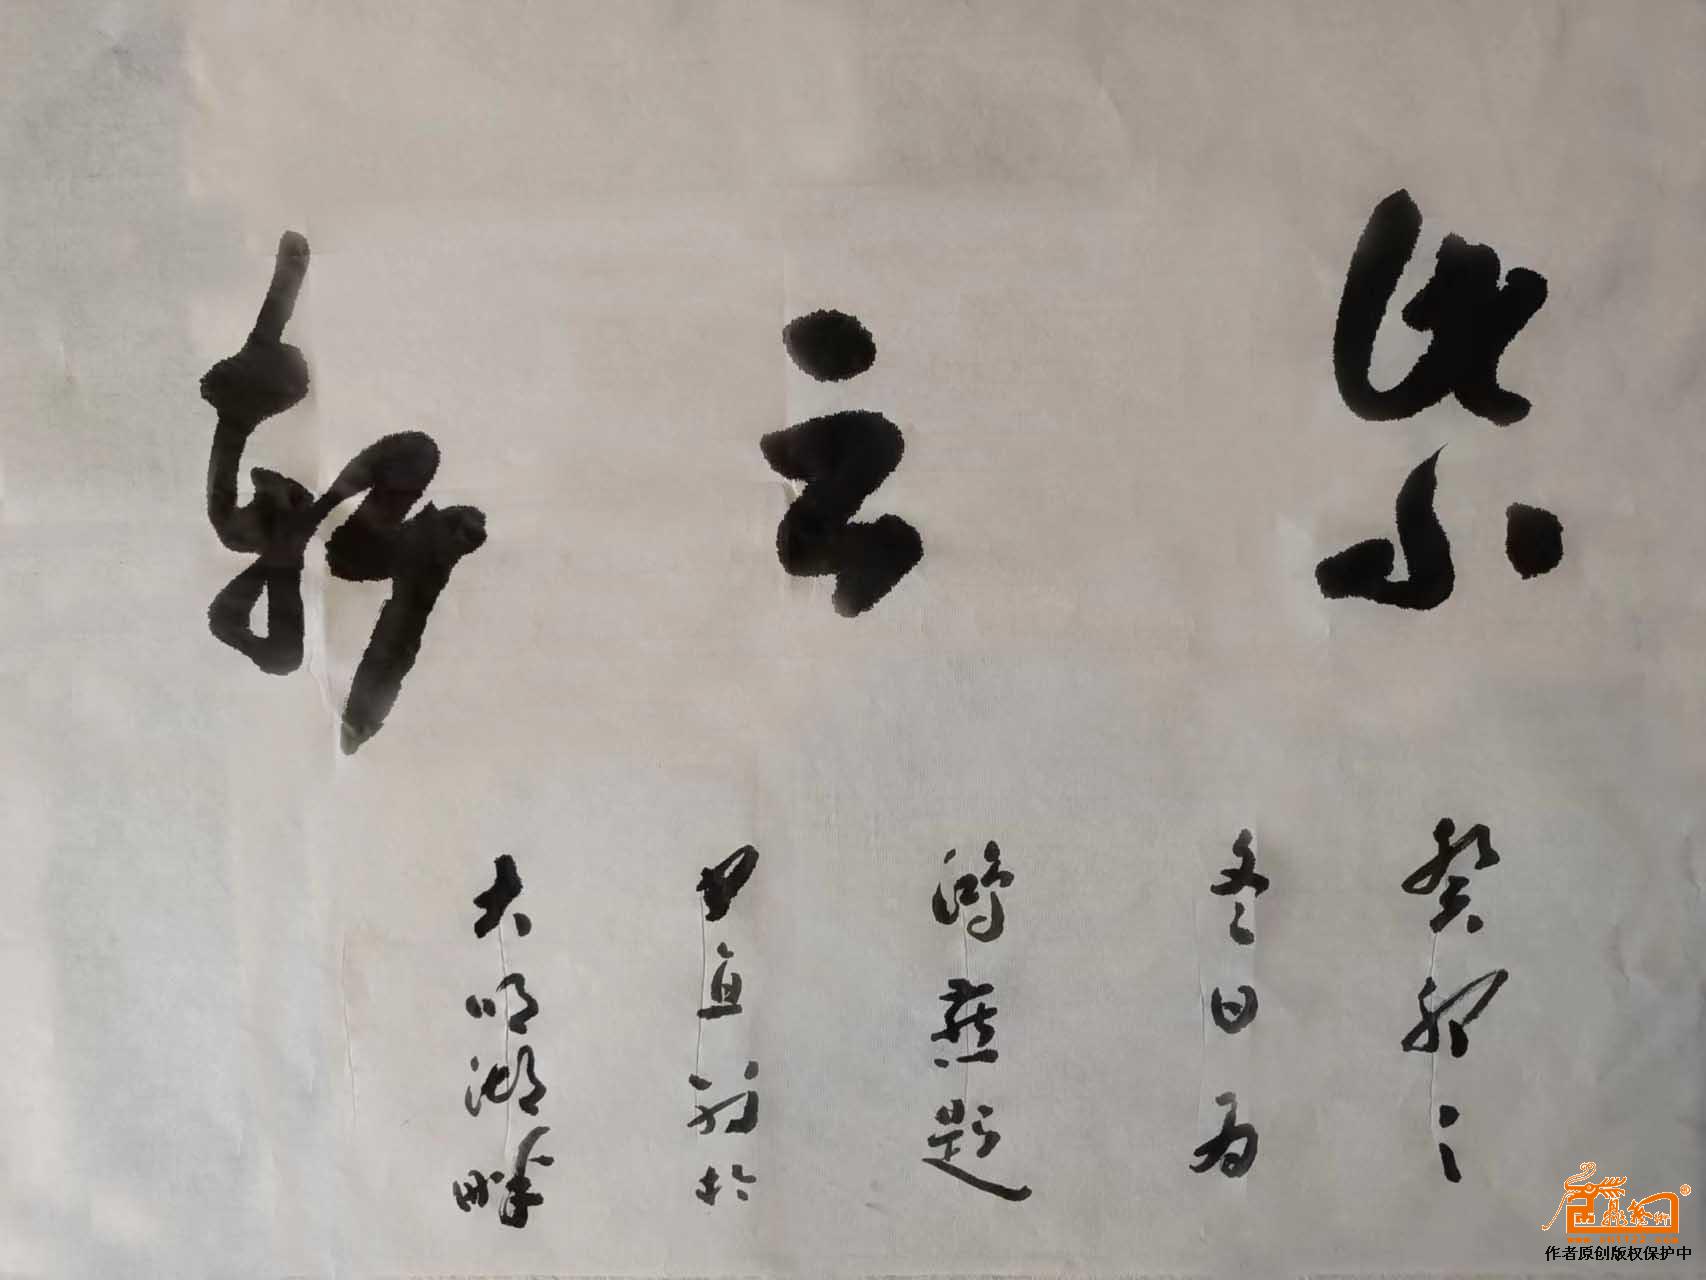 紫云轩
癸卯之
冬日为
鸿燕题
於
大明湖畔
作者原创版权保护中